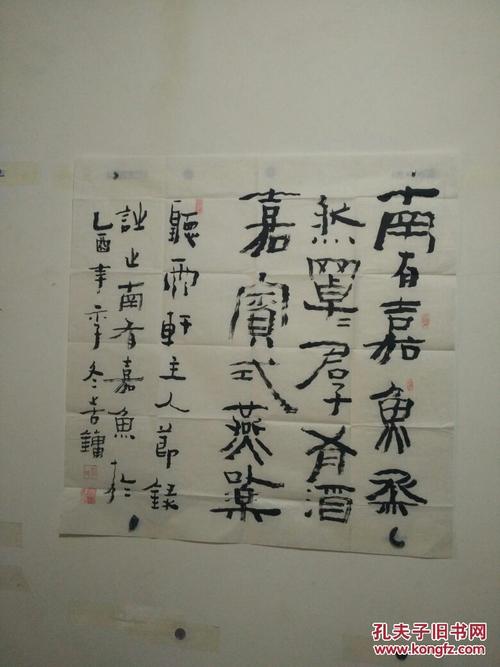 南有嘉魚烝
然罩〻君子有酒
嘉賓式燕樂
聽雨軒主人節録
南有嘉魚於
乙酉年冬
孔夫子旧书网
www.kongfz.com